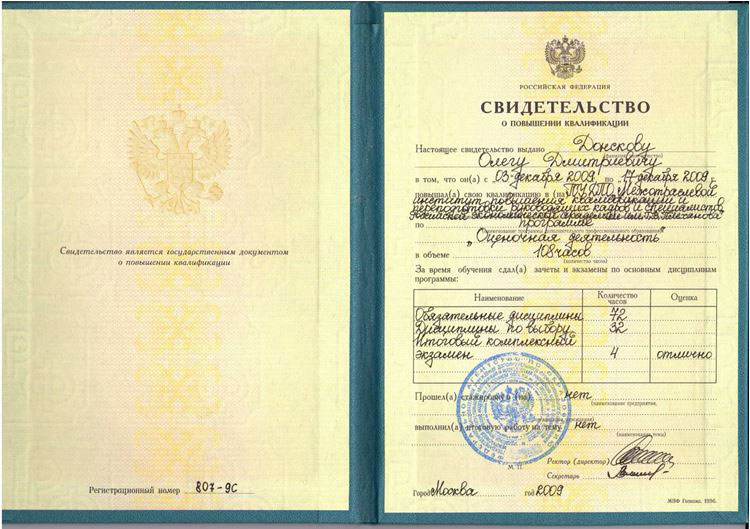 Свидетельство является государственным документом
о повышении квалификации
Регистрационный номер 807-9С
РОССИЙСКАЯ ФЕДЕРАЦИЯ
СВИДЕТЕЛЬСТВО
О ПОВЫШЕНИИ КВАЛИФИКАЦИИ
Настоящее свидетельство выдано Донскову
Олегу Дмитриевичу
в том, что он(а) с 03 декабря 2009 по 17 декабря 2009 г.
повышал(а) свою квалификацию в (на) ГОУ ДПО Межотраслевой
институт повышения квалификации и
переподготовки руководящих кадров и специалистов
Российской экономической академии им. Г.В. Плеханова
по программе
(наименование программы дополнительного профессионального образования)
„Оценочная деятельность"
в объеме 108 часов
(количество часов)
За время обучения сдал(а) зачеты и экзамены по основным дисциплинам
программы:
Наименование Количество часов Оценка
Обязательные дисциплины 72
Дисциплины по выбору 32
Итоговый комплексный
экзамен 4 отлично
Прошел(а) стажировку в (на) нет
(наименование предприятия,
выполнил(а) итоговую работу на тему нет
(наименование темы)
Ректор (директор)
Секретарь
М. П.
Город Москва год 2009
МПФ Гознака. 1996.